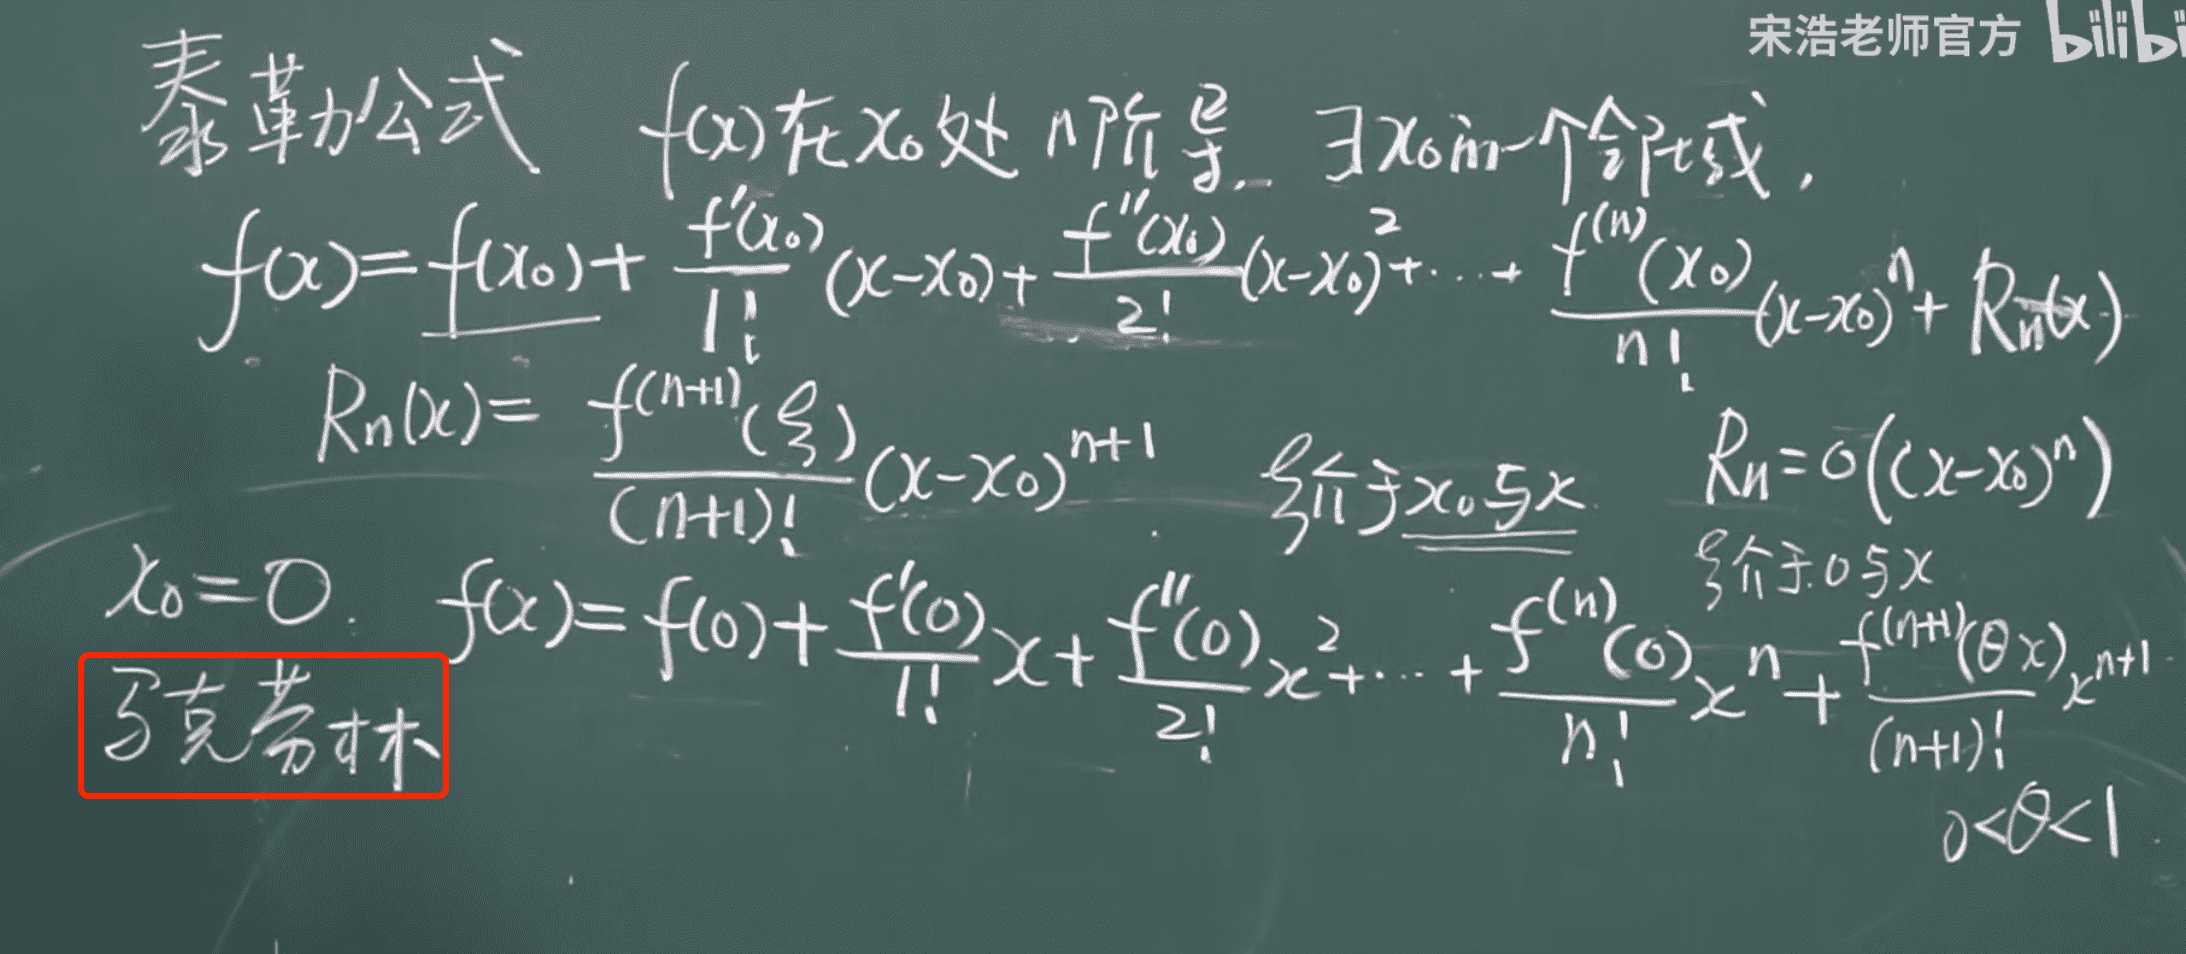 宋浩老师官方 bilibi
泰勒公式 f(x)在x₀处n阶导. ∃x₀的一个邻域,
f(x)=f(x₀)+f'(x₀)/1!(x-x₀)+f''(x₀)/2!(x-x₀)²+···+f⁽ⁿ⁾(x₀)/n!(x-x₀)ⁿ+Rn(x)
Rn(x)=f⁽ⁿ⁺¹⁾(ξ)/(n+1)!(x-x₀)ⁿ⁺¹. ξ介于x₀与x. Rn=o((x-x₀)ⁿ)
ξ介于0与x
x₀=0. f(x)=f(0)+f'(0)/1!x+f''(0)/2!x²+···+f⁽ⁿ⁾(0)/n!xⁿ+f⁽ⁿ⁺¹⁾(θx)/(n+1)!xⁿ⁺¹.
马克劳林
0<θ<1.